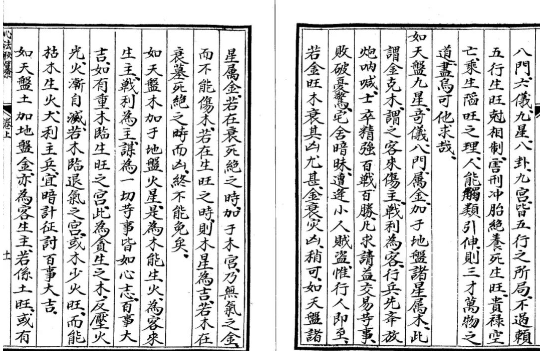 八門六儀九星八卦九宮皆五行之所局不過賴
五行生旺尅相制害刑冲胎絕養死生旺貴祿空
亡乘生陷旺之理人能觸類引伸則三才萬物之
道盡焉可他求哉
如天盤九星奇儀八門属金加于地盤諸星属木此
謂金克木謂之客來傷主戰利為客行兵先舉放
炮吶喊士卒精強百戰百勝凡求請益交易等事
敗破憂驚宅舍暗昧遭逢小人賊盜惟行人即至
若金旺木衰其凶尤甚金衰灾凶稍可如天盤諸
星属金若在衰死絕之時加于木宮乃無氣之金
而不能傷木若在生旺之時則木星為吉若木在
衰墓死絕之時而凶終不能免矣
如天盤木加于地盤火星是為木能生火為客來
生主戰利為主謀為一切等事皆如心志百事大
吉如有重木臨生旺之宮此為貪生之木反壓火
光火漸自滅若木臨退氣之宮或木少火旺而能
枯木生火大利主兵宜暗計征討百事大吉
如天盤土加地盤金亦為客生主若係土旺或有
心法秘
卷上
十